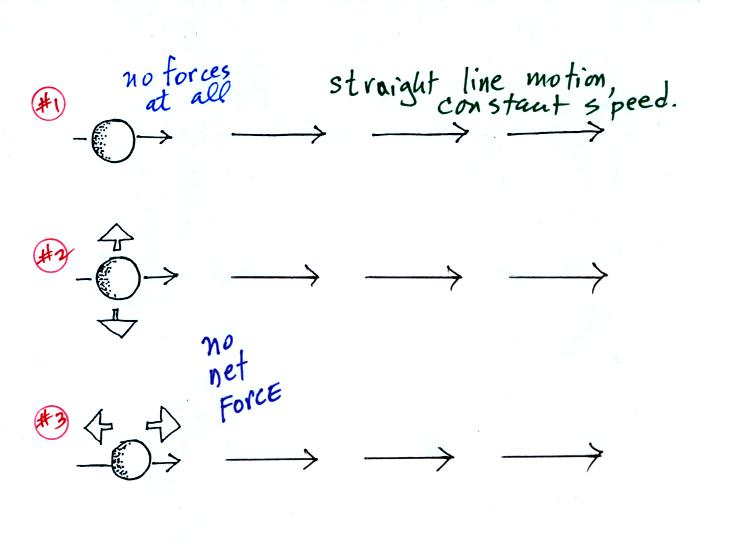 #1
no forces
at all
straight line motion,
constant speed.
#2
no
net
FORCE
#3